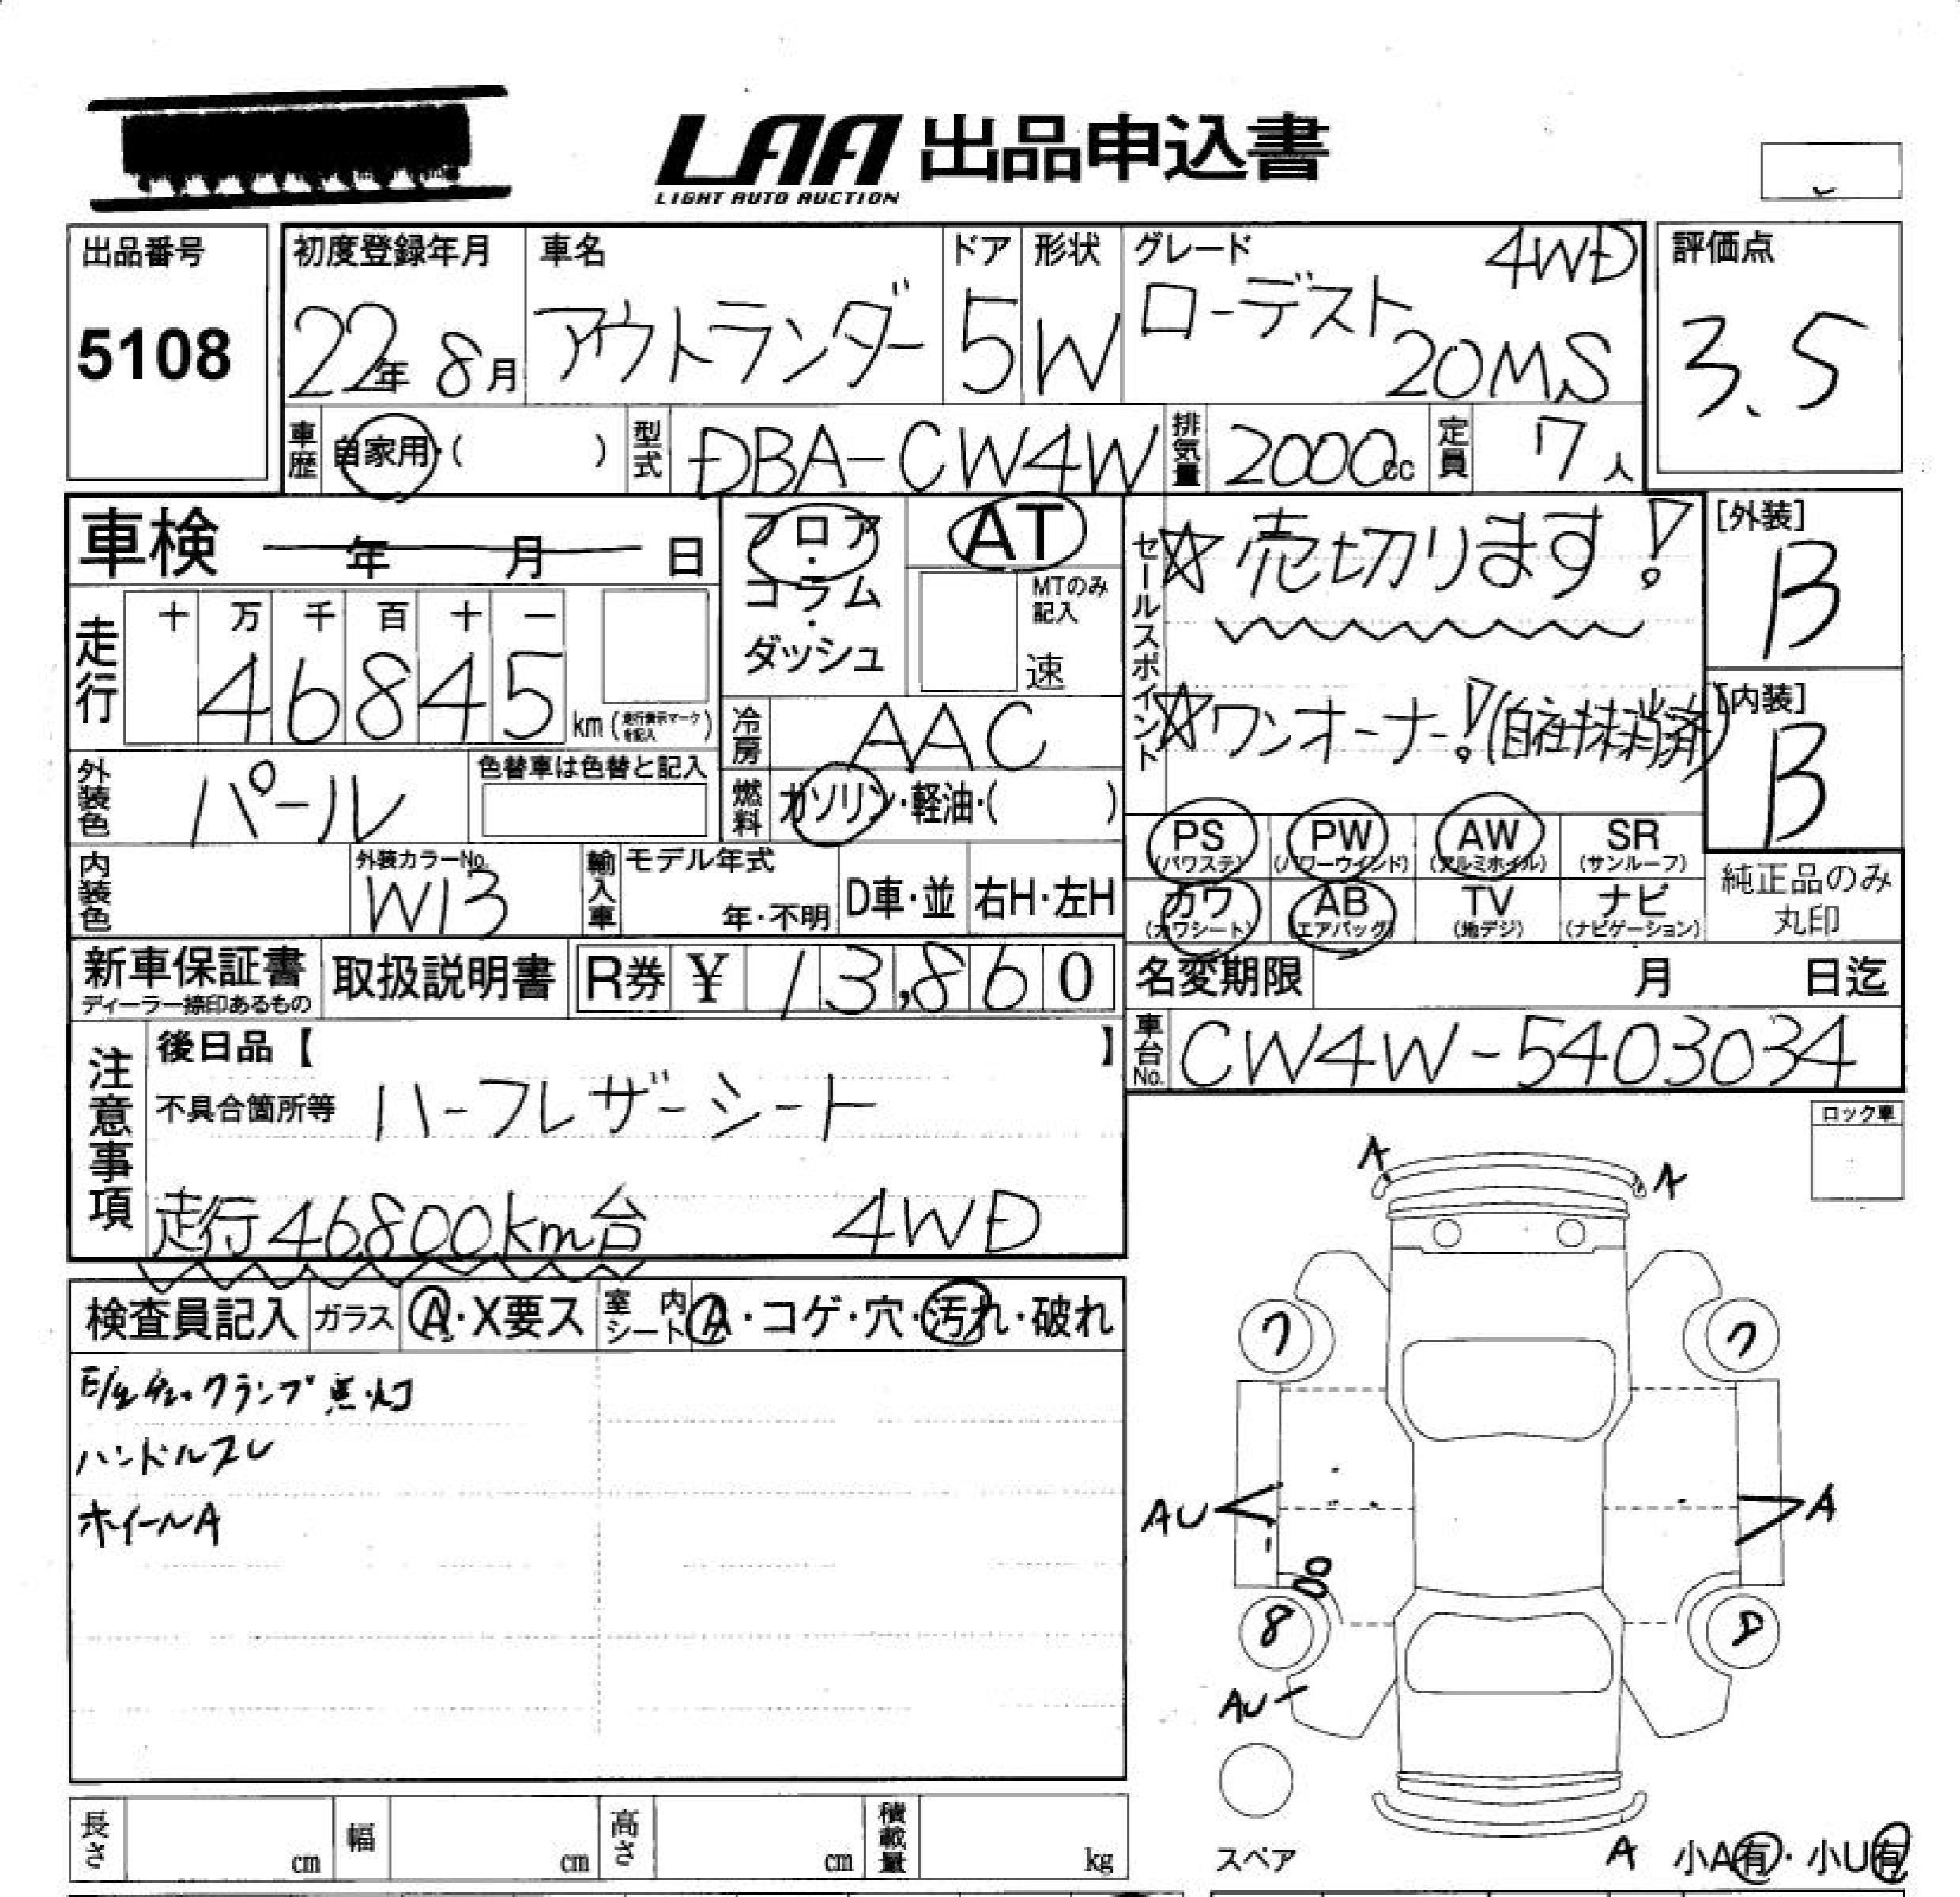 LAA 出品申込書
LIGHT AUTO AUCTION
出品番号
5108
初度登録年月
22年 8月
車名
アウトランダー
ドア
5
形状
W
グレード 4WD
ローデスト
20MS
評価点
3.5
車歴 自家用・( )
型式 DBA-CW4W
排気量 2000cc
定員 7人
車検 年 月 日
フロア・コラム・ダッシュ
AT
MTのみ記入
速
セールスポイント
☆売切ります!
☆ワンオーナー!(自社抹消済)
[外装]
B
[内装]
B
走行
十 万 千 百 十 一
46845 km (走行表示マークを記入)
冷房 AAC
外装色 パール
色替車は色替と記入
燃料 ガソリン・軽油・( )
PS (パワステ)
PW (パワーウインド)
AW (アルミホイル)
SR (サンルーフ)
カワ (カワシート)
AB (エアバッグ)
TV (地デジ)
ナビ (ナビゲーション)
純正品のみ
丸印
内装色
外装カラーNo.
W13
輸入車
モデル年式
年・不明
D車・並
右H・左H
新車保証書
ディーラー捺印あるもの
取扱説明書
R券 ¥ 13,860
名変期限 月 日迄
車台No. CW4W-5403034
注意事項
後日品【 】
不具合箇所等 ハーフレザーシート
走行46800km台 4WD
ロック車
検査員記入 ガラス A・X要ス 室内シート A・コゲ・穴・汚れ・破れ
チェックランプ点灯
ハンドルスレ
ホイールA
A A
7 7
AU A
8 8
AU
スペア
A 小A有・小U有
長さ cm
幅 cm
高さ cm
積載量 kg